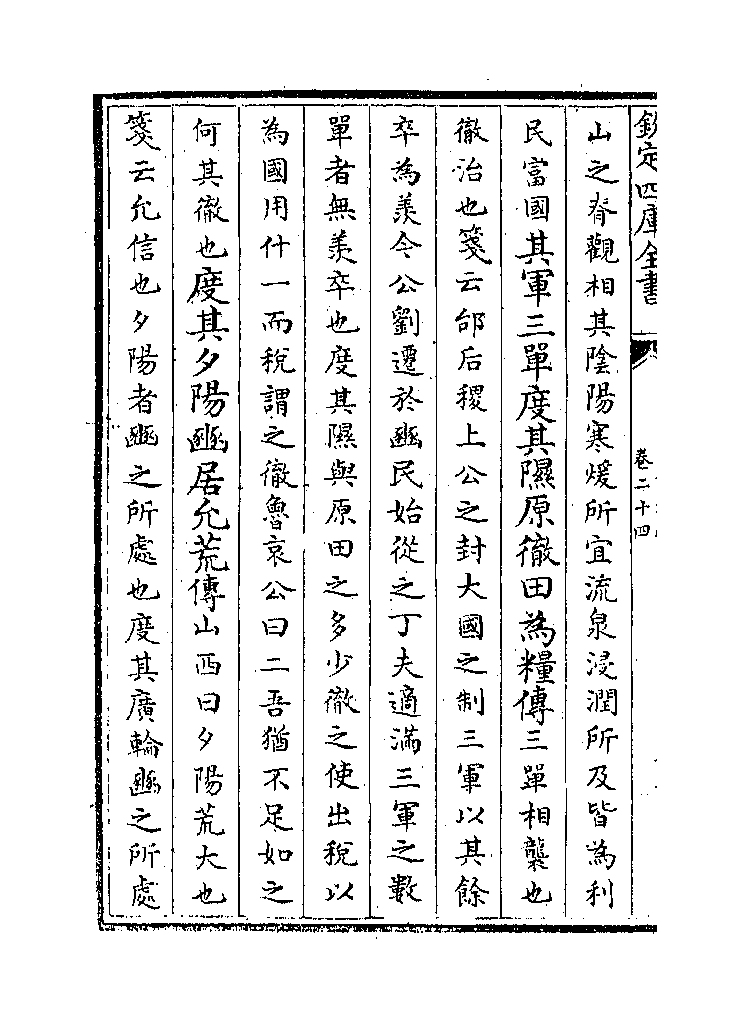 欽定四庫全書
卷二十四
山之脊觀相其陰陽寒煖所宜流泉浸潤所及皆為利
民富國其軍三單度其隰原徹田為糧傳三單相襲也
徹治也箋云邰后稷上公之封大國之制三軍以其餘
卒為羨今公劉遷於豳民始從之丁夫適滿三軍之數
單者無羨卒也度其隰與原田之多少徹之使出稅以
為國用什一而稅謂之徹魯哀公曰二吾猶不足如之
何其徹也度其夕陽豳居允荒傳山西曰夕陽荒大也
箋云允信也夕陽者豳之所處也度其廣輪豳之所處